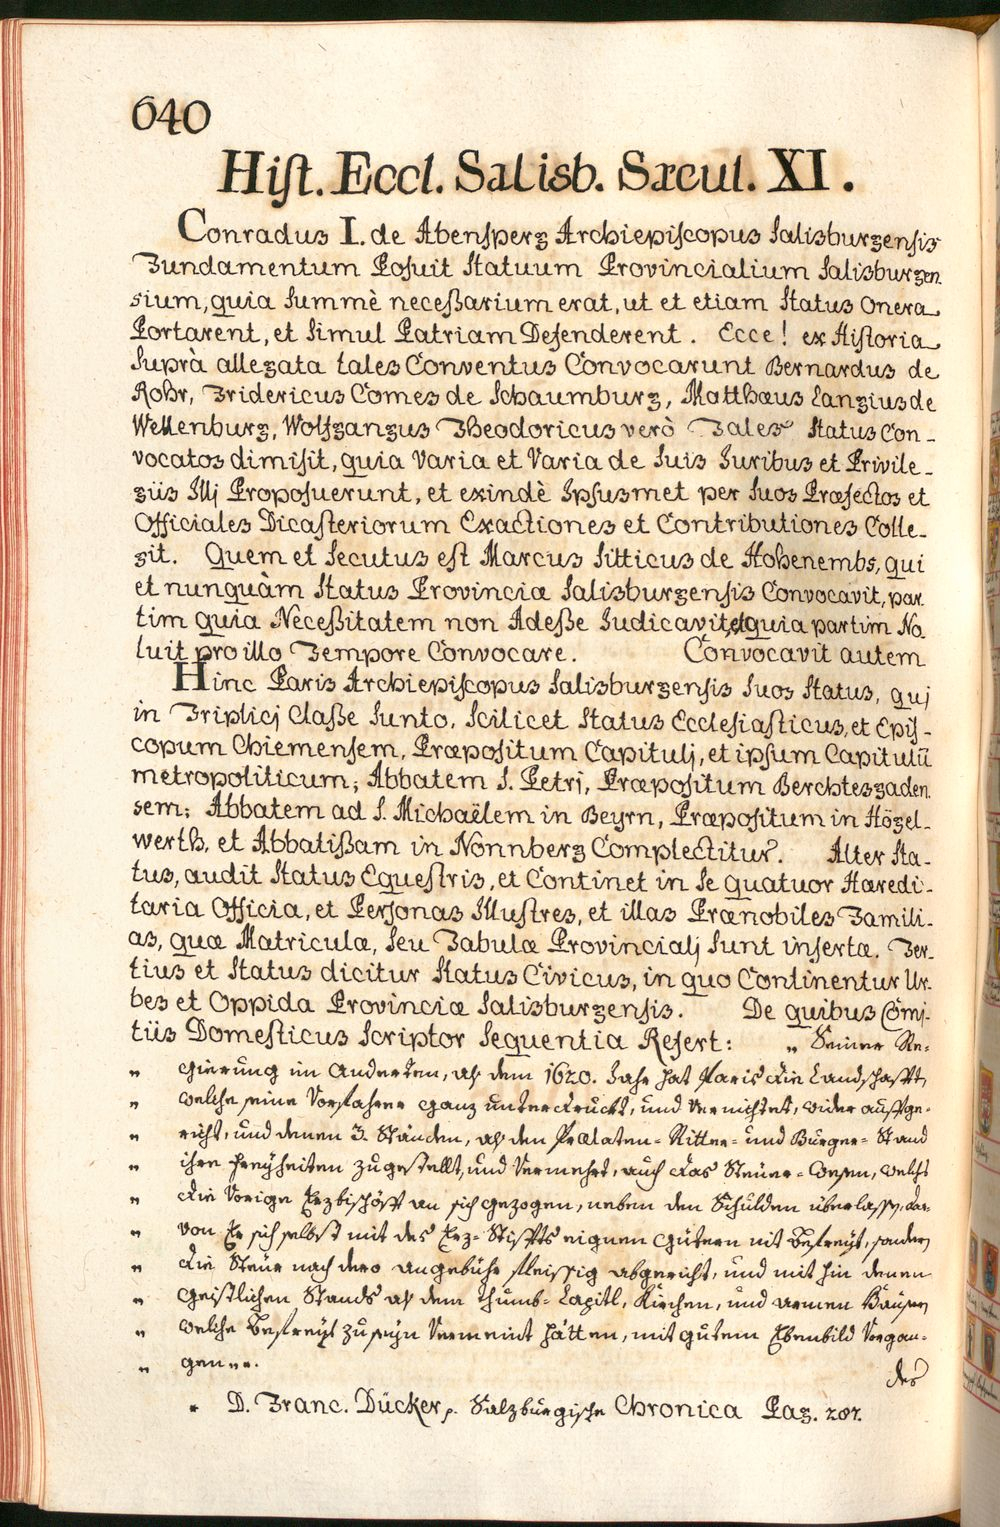 640
Hist. Eccl. Salisb. Sæcul. XI.
Conradus I. de Abensperg Archiepiscopus Salisburgensis
Fundamentum Posuit Statuum Provincialium Salisburgen
sium, quia summè neceßarium erat, ut et etiam Status onera
Portarent, et simul Patriam Defenderent. Ecce! ex Historia
suprà allegata tales Conventus Convocarunt Bernardus de
Rohr, Fridericus Comes de Schaumburg, Matthæus Langius de
Wellenburg, Wolfgangus Theodoricus verò Tales Status Con-
vocatos dimisit, quia Varia et Varia de suis Juribus et Privile-
giis Illj Proposuerunt, et exindè Ipsusmet per suos Præfectos et
Officiales Dicasteriorum Exactiones et Contributiones Colle-
git. Quem et secutus est Marcus Sitticus de Hohenembs, qui
et nunquàm Status Provinciæ Salisburgensis Convocavit, par
tim quia Neceßitatem non Adeße Judicavit, et quia partim No
luit pro illo Tempore Convocare. Convocavit autem
Hinc Paris Archiepiscopus Salisburgensis suos Status, quj
in Triplicj Claße sunto, scilicet Status Ecclesiasticus, et Epis-
copum Chiemensem, Præpositum Capitulj, et ipsum Capitulũ
metropoliticum; Abbatem S. Petri, Præpositum Berchtesgaden.
sem; Abbatem ad S. Michaëlem in Beyrn, Præpositum in Högel-
werth, et Abbatißam in Nonnberg Complectitur. Alter Sta-
tus, audit Status Equestris, et Continet in se quatuor Haredi-
taria Officia, et Personas Illustres, et illas Prænobiles Famili-
as, quæ Matriculæ, seu Tabulæ Provincialj sunt insertæ. Ter-
tius et Status dicitur Status Civicus, in quo Continentur Ur-
bes et Oppida Provinciæ Salisburgensis. De quibus Comi-
tiis Domesticus Scriptor sequentia Refert: „ Seiner Re-
„ gierung im anderten, als dem 1620. Jahr hat Paris die Landschafft,
„ welche seine Vorfahrer ganz unterdruckt, und vernichtet, wider auffge-
„ richt, und denen 3. Ständen, als den Prælaten- Ritter- und Burger- Stand
„ ihre Freyheiten zugestellt, und vermehrt, auch das Steuer- Wesen, welches
„ die Vorige Erzbischöff an sich gezogen, neben den Schulden überlassen, dar-
„ von Er sich selbst mit des Erz- Stiffts eignen Gütern nit befreyt, sondern
„ die Steur nach dero angebühr fleissig abgericht, und mithin denen
„ Geistlichen Stands als dem Thumb- Capitl, Kirchen, und armen Häusern
„ welche befreyt zu seyn vermeint hätten, mit gutem Ebenbild Vorgan-
„ gen „.
des
* D. Franc. Dücker, Salzburgische Chronica Pag.